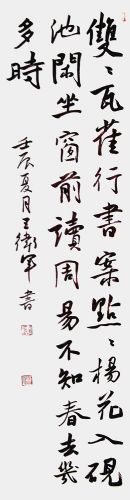 雙〻瓦雀行書案點〻楊花入硯
池閑坐窗前讀周易不知春去幾
多時
壬辰夏月王衛軍書